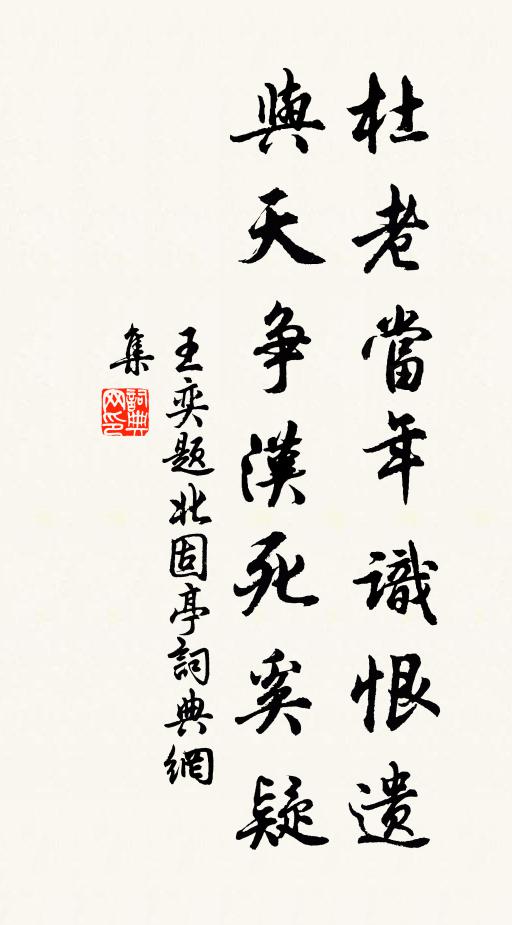 杜老當年識恨遺
與天争漢死奚疑
王奕题北固亭詞典網
集
詞典
网印